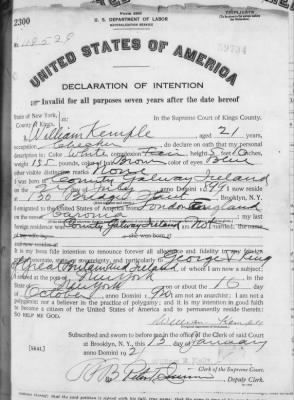 Form 2203
TRIPLICATE
U. S. DEPARTMENT OF LABOR
NATURALIZATION SERVICE
2300
No.
UNITED STATES OF AMERICA
DECLARATION OF INTENTION
Invalid for all purposes seven years after the date hereof
State of New York,
County Kings,
In the Supreme Court of Kings County.
I, William Kemple, aged 21 years,
occupation Checker, do declare on oath that my personal
description is: Color White, complexion Fair, height 5 feet inches,
weight 135 pounds, color of hair Brown, color of eyes Blue
other visible distinctive marks None
I was born in County Galway Ireland
on the day of July, anno Domini 1899; I now reside
at 150 Brooklyn, N. Y.
I emigrated to the United States of America from
on the vessel; my last
foreign residence was County Galway Ireland; I am Not married; the name
; she was born
and now resides at
It is my bona fide intention to renounce forever all allegiance and fidelity to any foreign
George V King
of Great Britain and Ireland, of whom I am now a subject;
I arrived at the port of New York, in the
of New York, on or about the 16 day
of October, anno Domini; I am not an anarchist; I am not a
polygamist nor a believer in the practice of polygamy; and it is my intention in good faith
to become a citizen of the United States of America and to permanently reside therein:
SO HELP ME GOD.
William Kemple
Subscribed and sworn to before me in the office of the Clerk of said Court
at Brooklyn, N. Y., this 13 day of January
anno Domini 192
[SEAL]
Clerk of the Supreme Court.
By Deputy Clerk.